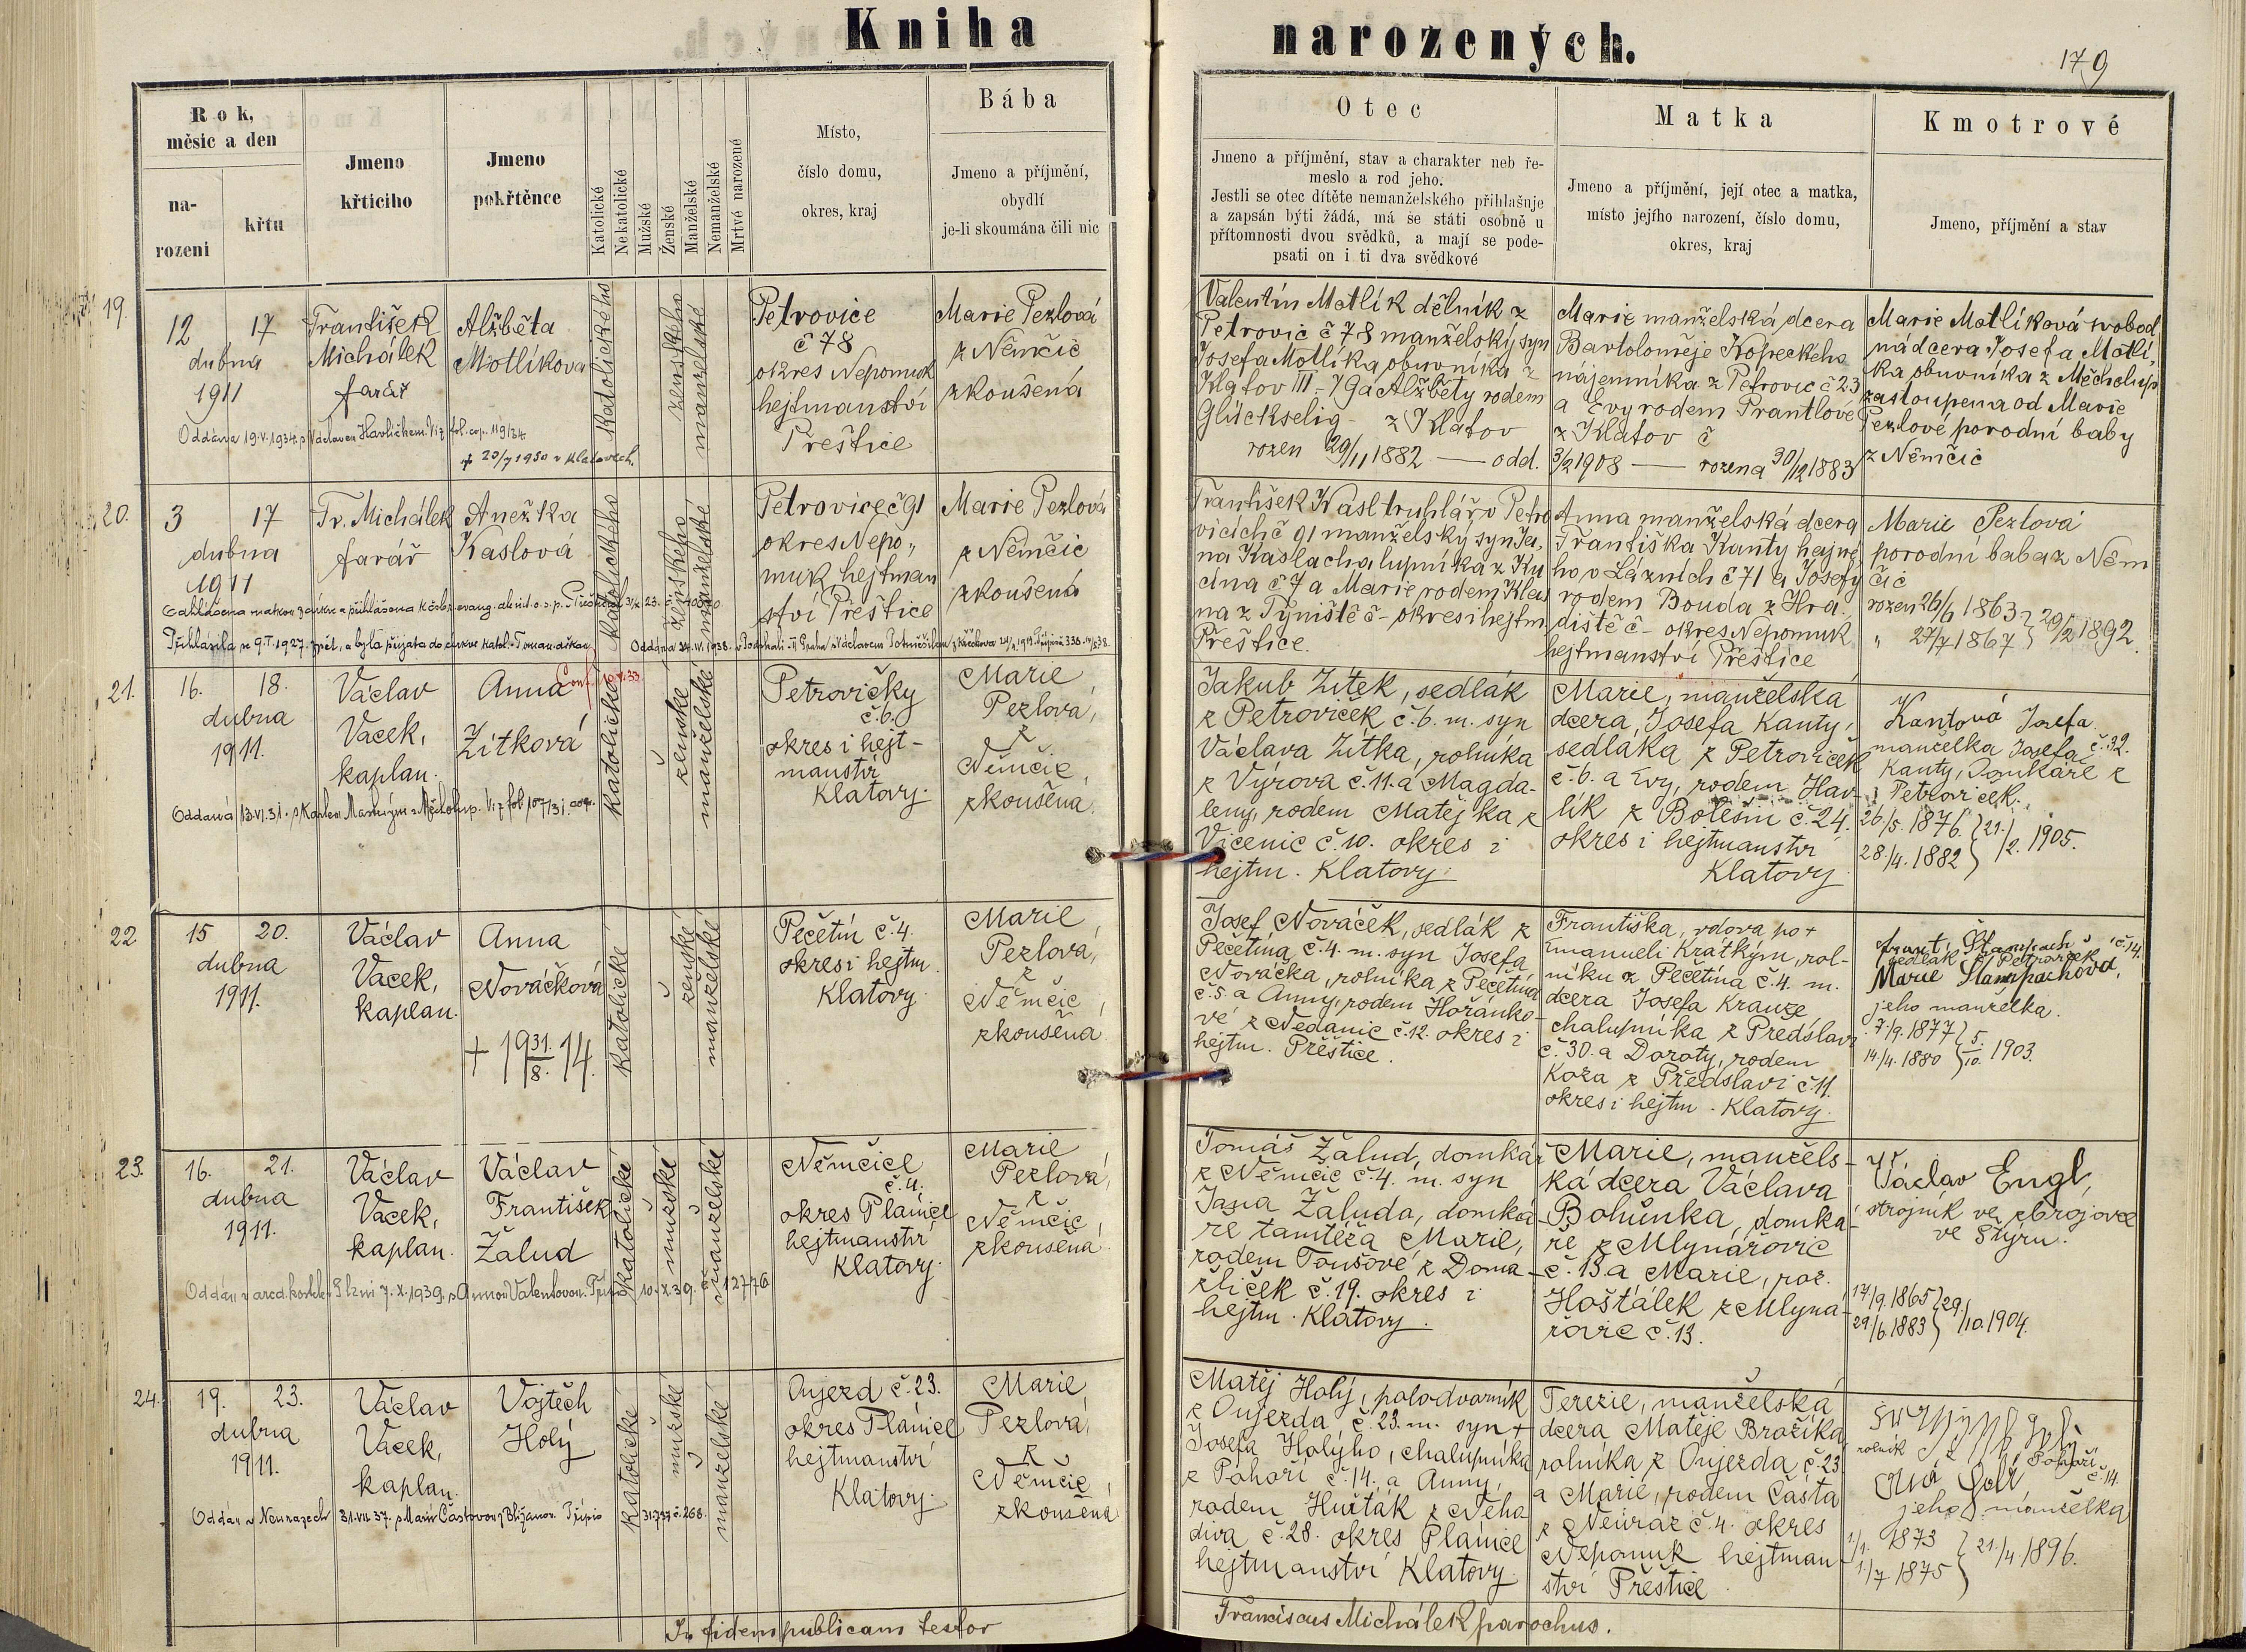 Kniha
narozených.
179
Rok,
měsíc a den
na-
rozeni
křtu
Jmeno
křtícího
Jmeno
pokřtěnce
Katolické
Nekatolické
Mužské
Ženské
Manželské
Nemanželské
Mrtvé narozené
Místo,
číslo domu,
okres, kraj
Bába
Jmeno a příjmění,
obydlí
je-li skoumána čili nic
Otec
Jmeno a příjmění, stav a charakter neb ře-
meslo a rod jeho.
Jestli se otec dítěte nemanželského přihlašuje
a zapsán býti žádá, má se státi osobně u
přítomnosti dvou svědků, a mají se pode-
psati on i ti dva svědkové
Matka
Jmeno a příjmění, její otec a matka,
místo jejího narození, číslo domu,
okres, kraj
Kmotrové
Jmeno, příjmění a stav
19.
12 17
dubna
1911
František
Michálek
farář
Alžběta
Motlíkova
katolického
ženského
manželské
Petrovice
č 78
okres Nepomuk
hejtmanství
Přeštice
Marie Pezlová
z Němčic
zkoušená
Oddána 19.V.1934 s Václavem Havlíčkem. Viz fol. cop. 119/34
+ 20/7 1950 v Klatovech.
Valentin Motlík dělník z
Petrovic č 78 manželský syn
Josefa Motlíka obuvníka z
Klatov III - 79 a Alžběty rodem
Glückselig - z Klatov
rozen 29/11 1882 — odd.
Marie manželská dcera
Bartoloměje Kopeckého
nájemníka z Petrovic č 23
a Evy rodem Prantlové
z Klatov č
3/2 1908 — rozena 30/12 1883
Marie Motlíková svobod
ná dcera Josefa Motlí,
ka obuvníka z Měcholup
zastoupena od Marie
Pezlové porodní baby
z Němčic
20.
3 17
dubna
1911
Fr. Michálek
farář
Anežka
Kaslová
katolického
ženského
manželské
Petrovice č 91
okres Nepo„
muk hejtman
ství Přeštice
Marie Pezlová
z Němčic
zkoušená
Přihlásila se 9.I.1927. zpět, a byla přijata do církve katol.
František Kasl truhlář v Petro
vicích č 91 manželský syn Ja,
na Kasla chalupníka z Ku
cína č 7 a Marie rodem Klas
na z Týniště č - okres i hejtm
Přeštice.
Anna manželská dcera
Františka Kanty hajné
ho v Lázních č 71 a Josefy
rodem Bouda z Hra
diště č - okres Nepomuk
hejtmanství Přeštice
Marie Pezlová
porodní baba z Něm
čic
rozen 26/6 1863 } 29/2 1892.
„ 27/7 1867
21.
16. 18.
dubna
1911.
Václav
Vacek,
kaplan.
Anna
Zítková
katolické
ženské
manželské
Petrovičky
č. 6.
okres i hejt-
manství
Klatovy.
Marie
Pezlová,
z
Němčic,
zkoušená.
Jakub Zítek, sedlák
z Petroviček č. 6. m. syn
Václava Zítka, rolníka
z Výrova č. 11. a Magda-
leny, rodem Matějka z
Vícenic č. 10. okres i
hejtm. Klatovy.
Marie, manželská
dcera, Josefa Kanty,
sedláka z Petroviček
č. 6. a Evy, rodem Hav-
lík z Bolešin č. 24.
okres i hejtmanství
Klatovy
Kantová Josefa
manželka Josefa č. 32.
Kanty, domkáře z
Petroviček.
26/5. 1876. } 21./2. 1905.
28./4. 1882
22
15 20.
dubna
1911.
Václav
Vacek,
kaplan.
Anna
Nováčková
+ 19 31./8. 14.
katolické
ženské
manželské
Pečetín č. 4.
okres i hejtm.
Klatovy.
Marie
Pezlová,
z
Němčic,
zkoušená
Josef Nováček, sedlák z
Pečetína č. 4. m. syn Josefa
Nováčka, rolníka z Pečetína
č. 5. a Anny, rodem Hořánko-
vé z Nedanic č. 12. okres i
hejtm. Přeštice.
Františka, vdova po +
Emanueli Krátkým, rol-
níku z Pečetína č. 4. m.
dcera Josefa Krauze
chalupníka z Předslavi
č. 30. a Doroty, rodem
Koza z Předslavi č. 11.
okres i hejtm. Klatovy.
Frant. Štampach
sedlák z Petroviček č 14.
Marie Štampachová,
jeho manželka.
7./9. 1877 } 5./10. 1903.
14./4. 1880
23.
16. 21.
dubna
1911.
Václav
Vacek,
kaplan.
Václav
František
Žalud
katolické
mužské
manželské
Němčice
č. 4.
okres Plánice
hejtmanství
Klatovy.
Marie
Pezlová,
z
Němčic,
zkoušená.
Tomáš Žalud, domkář
z Němčic č. 4. m. syn
Jana Žaluda, domká-
ře tamtéž a Marie,
rodem Toušové z Doma-
žliček č. 19. okres i
hejtm. Klatovy.
Marie, manžels-
ká dcera Václava
Bohůnka, domká-
ře z Mlynářovic
č. 13. a Marie, roz.
Hošťálek z Mlyná-
řovic č. 13.
Václav Engl,
strojník ve zbrojovce
ve Štýru.
17/9. 1865 } 29./10. 1904.
29/6. 1883
24.
19. 23.
dubna
1911.
Václav
Vacek,
kaplan.
Vojtěch
Holý
katolické
mužské
manželské
Oujezd č. 23.
okres Plánice
hejtmanství
Klatovy.
Marie
Pezlová,
z
Němčic
zkoušená
Matěj Holý, polodvorník
z Oujezda č. 23. m. syn +
Josefa Holýho, chalupníka
z Pohoří č. 14. a Anny,
rodem Huťťák z Neha
diva č. 28. okres Plánice
hejtmanství Klatovy.
Terezie, manželská
dcera Matěje Brožíka,
rolníka z Oujezda č. 23
a Marie, rodem Částa
z Neuraz č. 4. okres
Nepomuk hejtman-
ství Přeštice
rolník
Pohoří
č. 14.
jeho manželka
1./1. 1873 } 21./4. 1896.
1./7. 1875
In fidem publicam testor
Franciscus Michálek parochus.